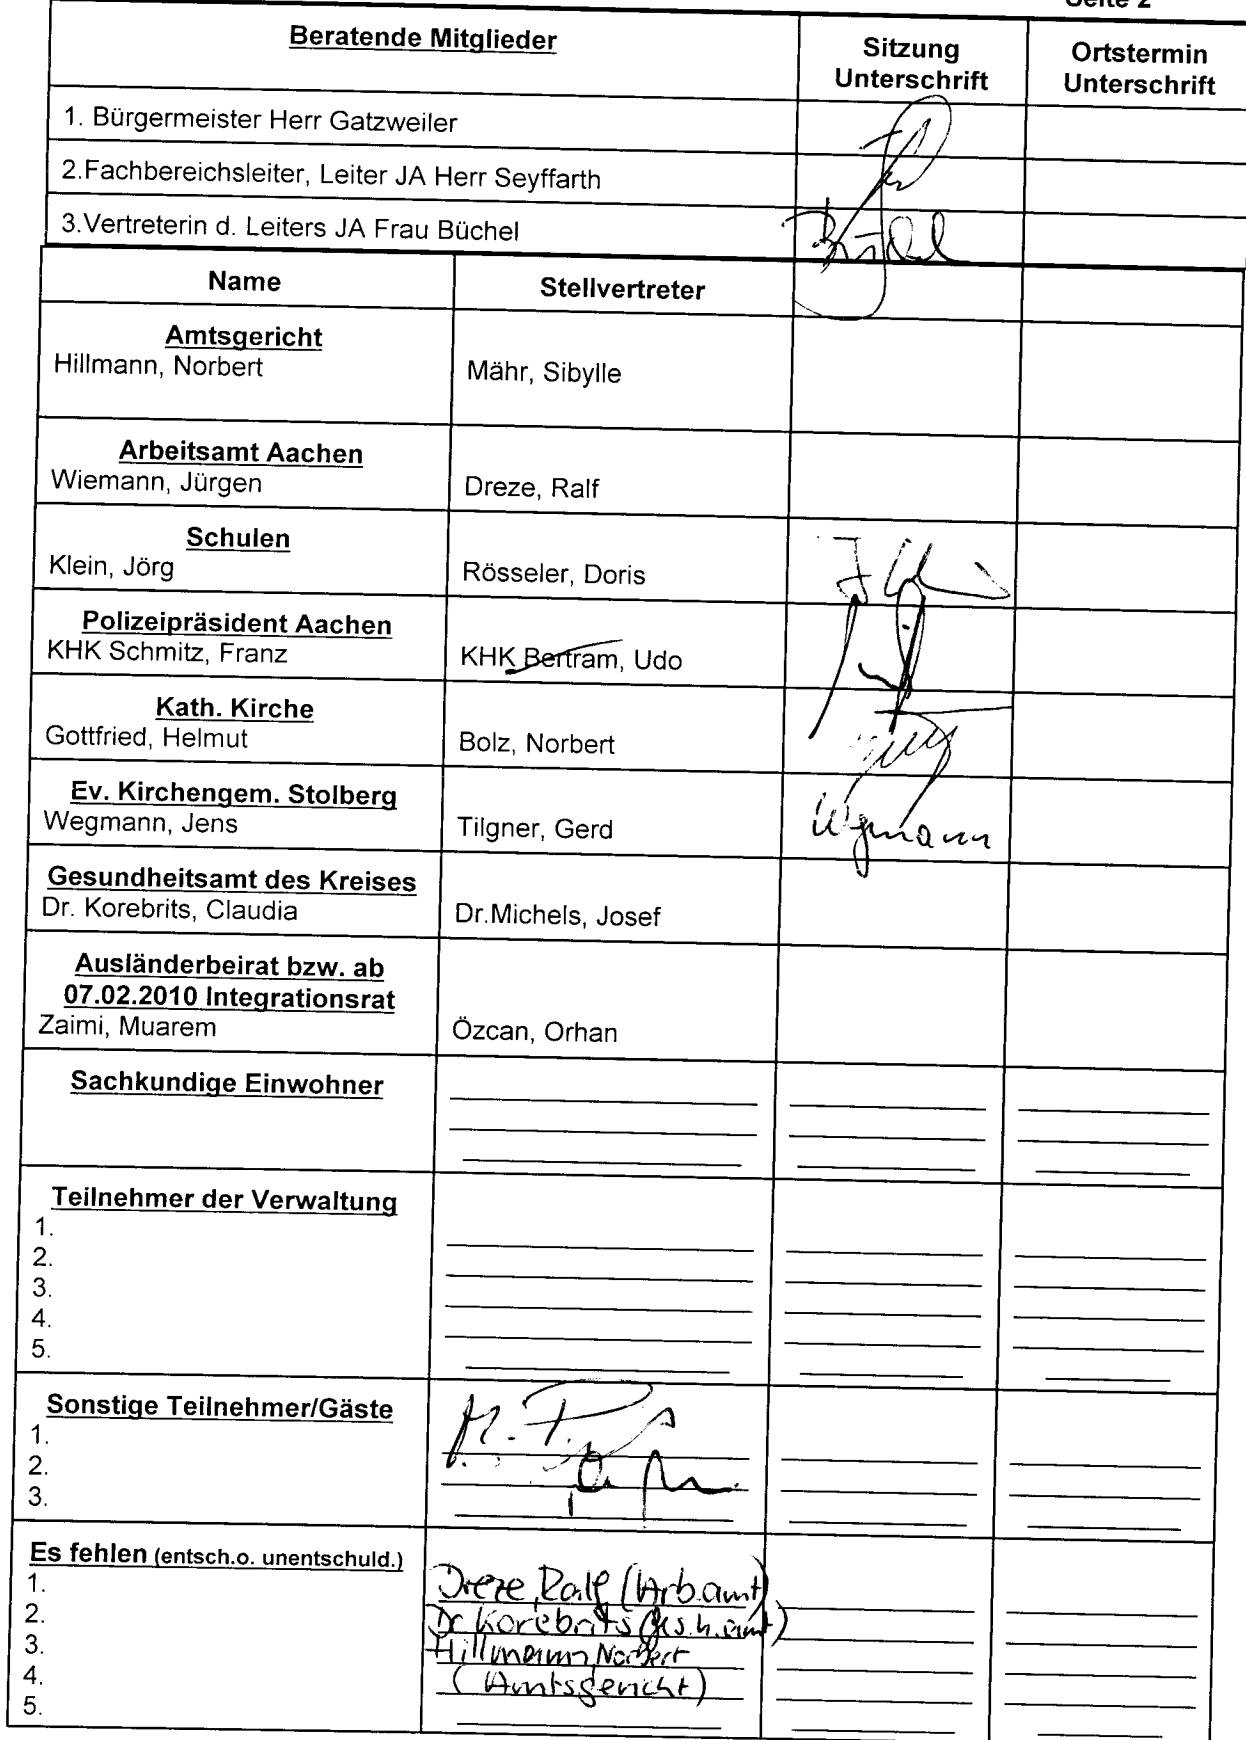 Seite 2
Beratende Mitglieder
Sitzung
Unterschrift
Ortstermin
Unterschrift
1. Bürgermeister Herr Gatzweiler
2.Fachbereichsleiter, Leiter JA Herr Seyffarth
3.Vertreterin d. Leiters JA Frau Büchel
Büchel
Name
Stellvertreter
Amtsgericht
Hillmann, Norbert
Mähr, Sibylle
Arbeitsamt Aachen
Wiemann, Jürgen
Dreze, Ralf
Schulen
Klein, Jörg
Rösseler, Doris
Polizeipräsident Aachen
KHK Schmitz, Franz
KHK Bertram, Udo
Kath. Kirche
Gottfried, Helmut
Bolz, Norbert
Ev. Kirchengem. Stolberg
Wegmann, Jens
Tilgner, Gerd
Wegmann
Gesundheitsamt des Kreises
Dr. Korebrits, Claudia
Dr.Michels, Josef
Ausländerbeirat bzw. ab
07.02.2010 Integrationsrat
Zaimi, Muarem
Özcan, Orhan
Sachkundige Einwohner
Teilnehmer der Verwaltung
1.
2.
3.
4.
5.
Sonstige Teilnehmer/Gäste
1.
2.
3.
Es fehlen (entsch.o. unentschuld.)
1.
2.
3.
4.
5.
Dreze, Ralf (Arb.amt)
Dr. Korebrits (Ges.h.amt)
Hillmann, Norbert
(Amtsgericht)